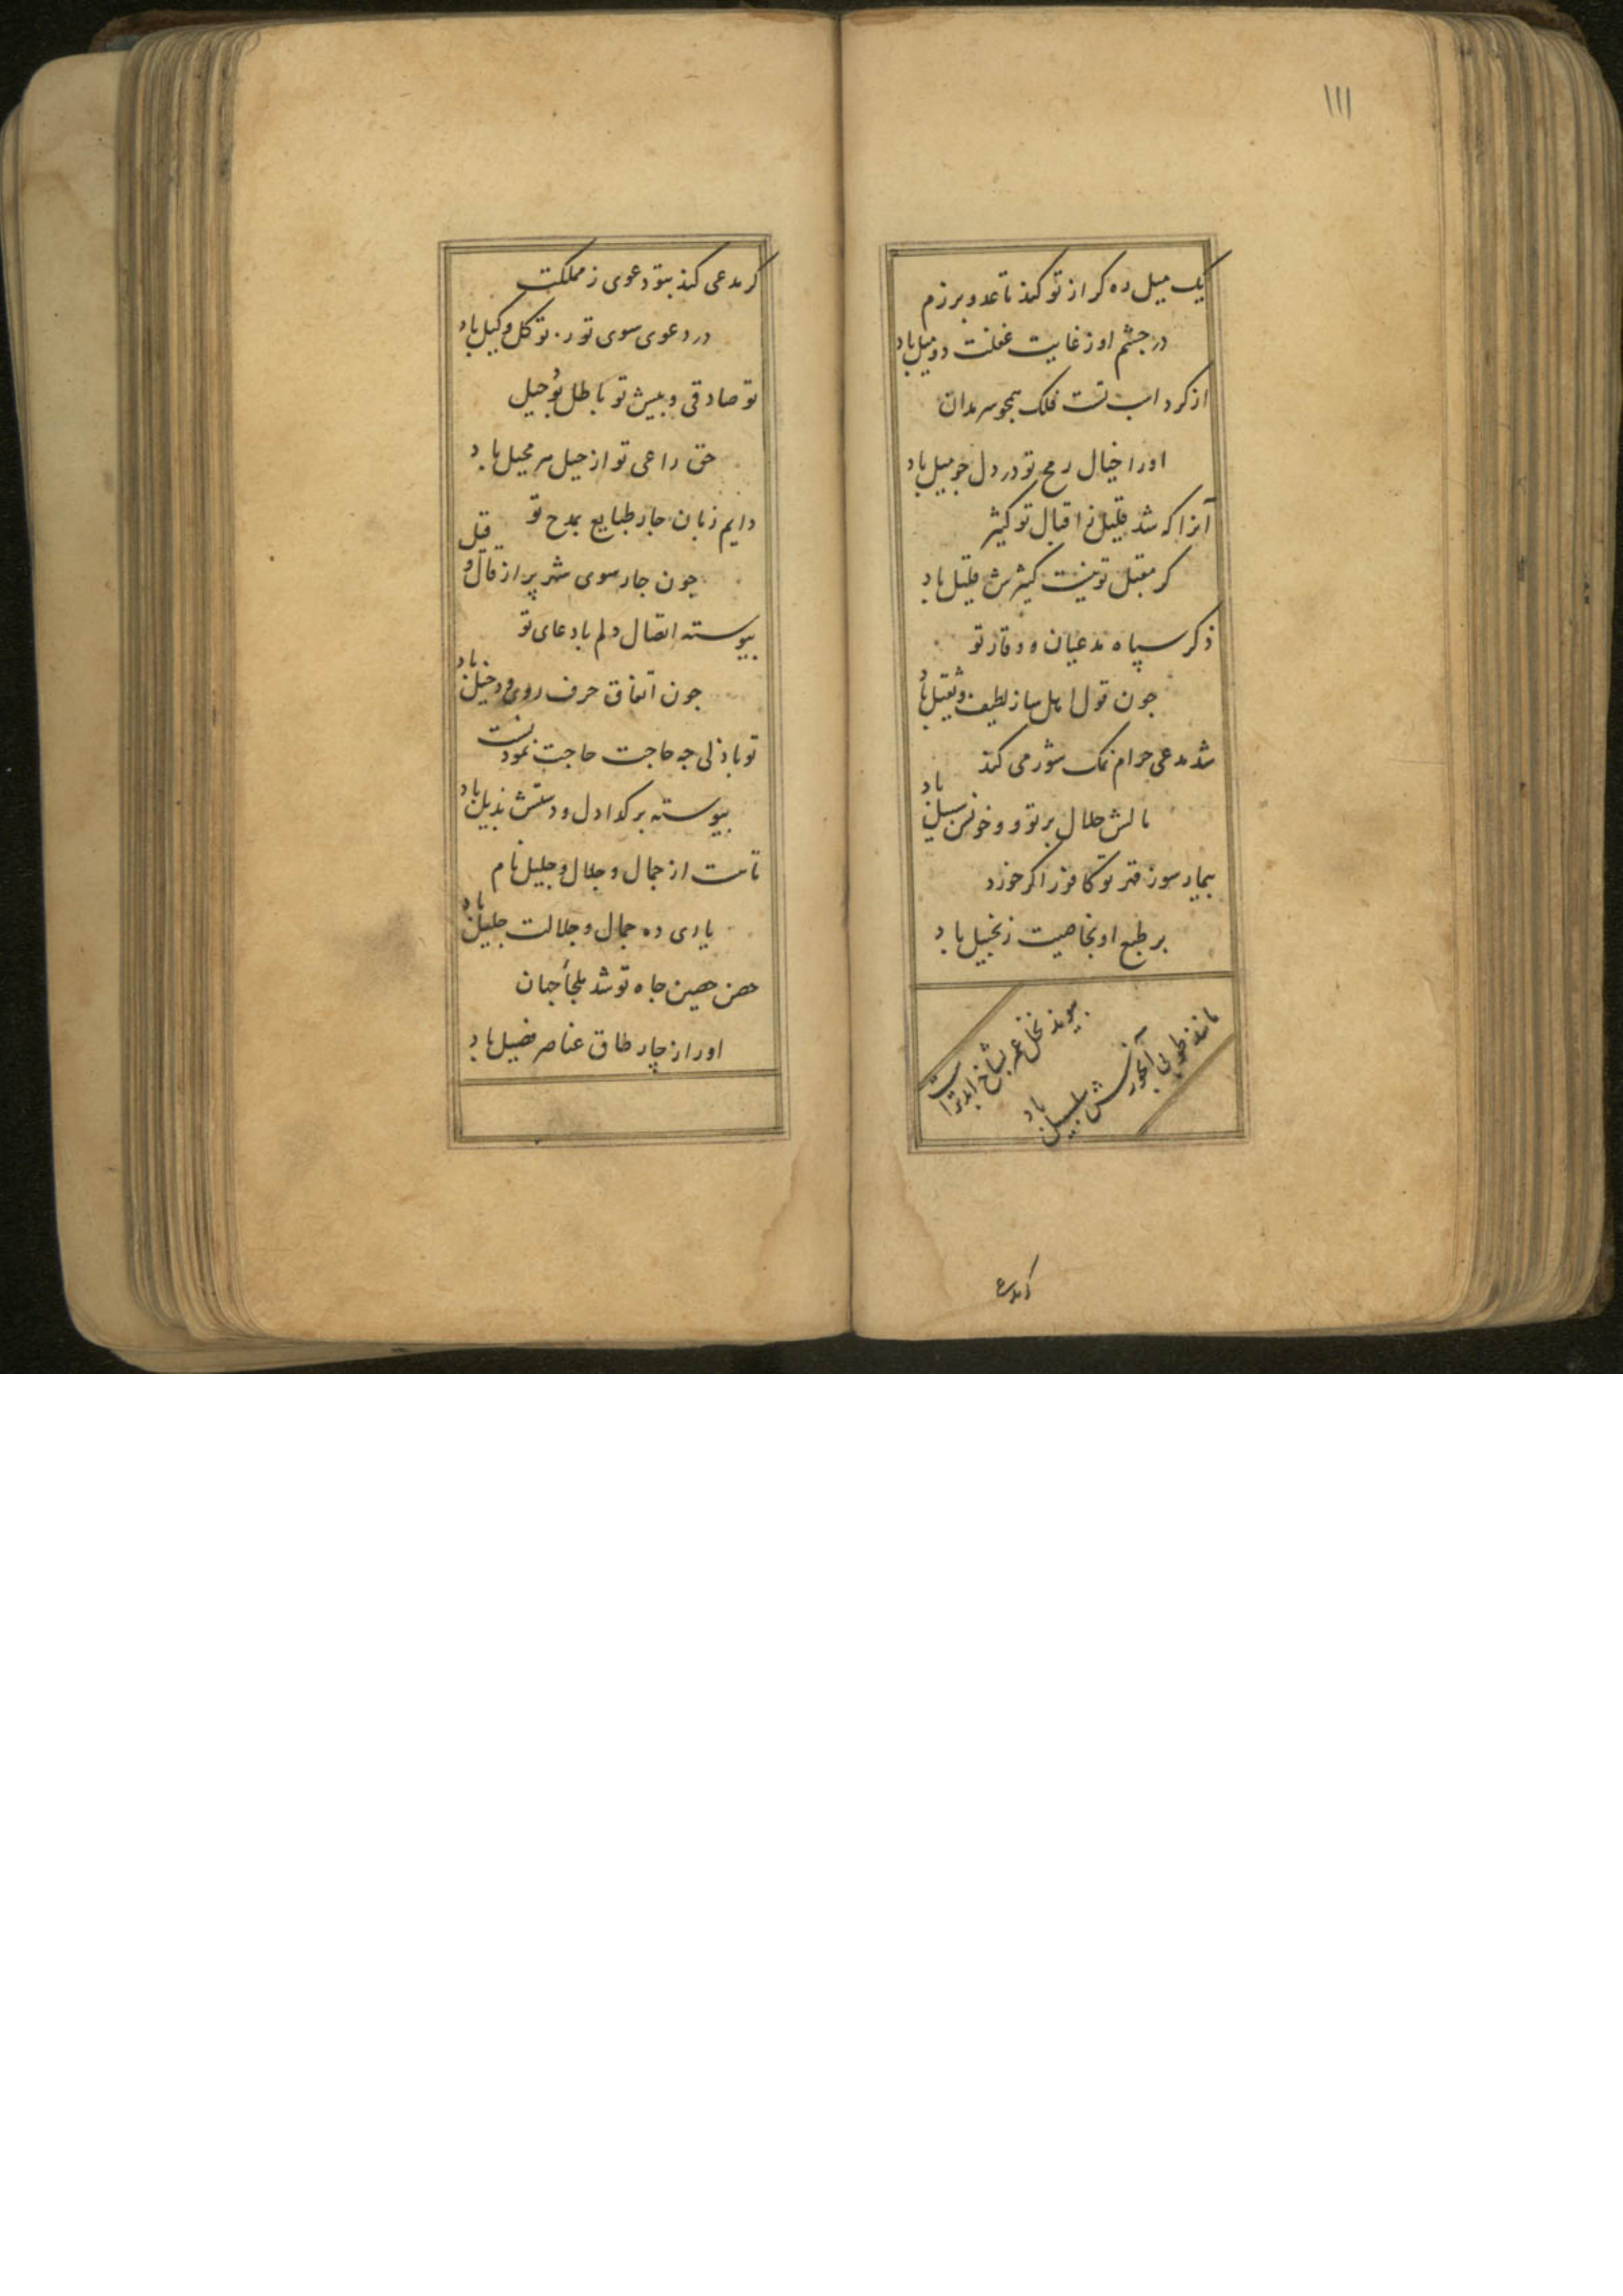 ۱۱۱
یک میل ره کر از تو کند تا عدو برزم
در جشم او ز غایت غفلت دو میل باد
از کرد اسب تست فلک همجو سرمه دان
اورا خیال رمح تو در دل جو میل باد
آنرا که شد قلیل ز اقبال تو کثیر
کر مقبل تو نیست کثیرش قلیل باد
ذکر سپاه مدعیان و وقار تو
جون قول اهل ساز لطیف و ثقیل باد
شد مدعی حرام نمک شور می کند
مالش حلال بر تو و خونش سبیل باد
بیمار سوز قهر تو کافور اکر خورد
بر طبع او بخاصیت زنجبیل باد
پیوند نخل عمر بشاخ ابد تراست
مانند طوبی آبخورش سلسبیل باد
کر مدعی
کر مدعی کند بتو دعوی ز مملکت
در دعوی سوی تو توکل وکیل باد
تو صادقی و پیش تو باطل بوحیل
حق راعی تو از حیل هر محیل باد
دایم زبان جار طبایع بمدح تو
جون جار سوی شهر پر از قال و قیل باد
پیوسته اتصال دلم با دعای تو
جون اتفاق حرف روی و دخیل باد
تو باذلی جه حاجت حاجت نمودنست
پیوسته بر کدا دل و دستش بذیل باد
تاست از جمال و جلال و جلیل نام
یاری ده جمال و جلالت جلیل باد
حصن حصین جاه تو شد ملجأ جهان
اورا ز چار طاق عناصر فصیل باد